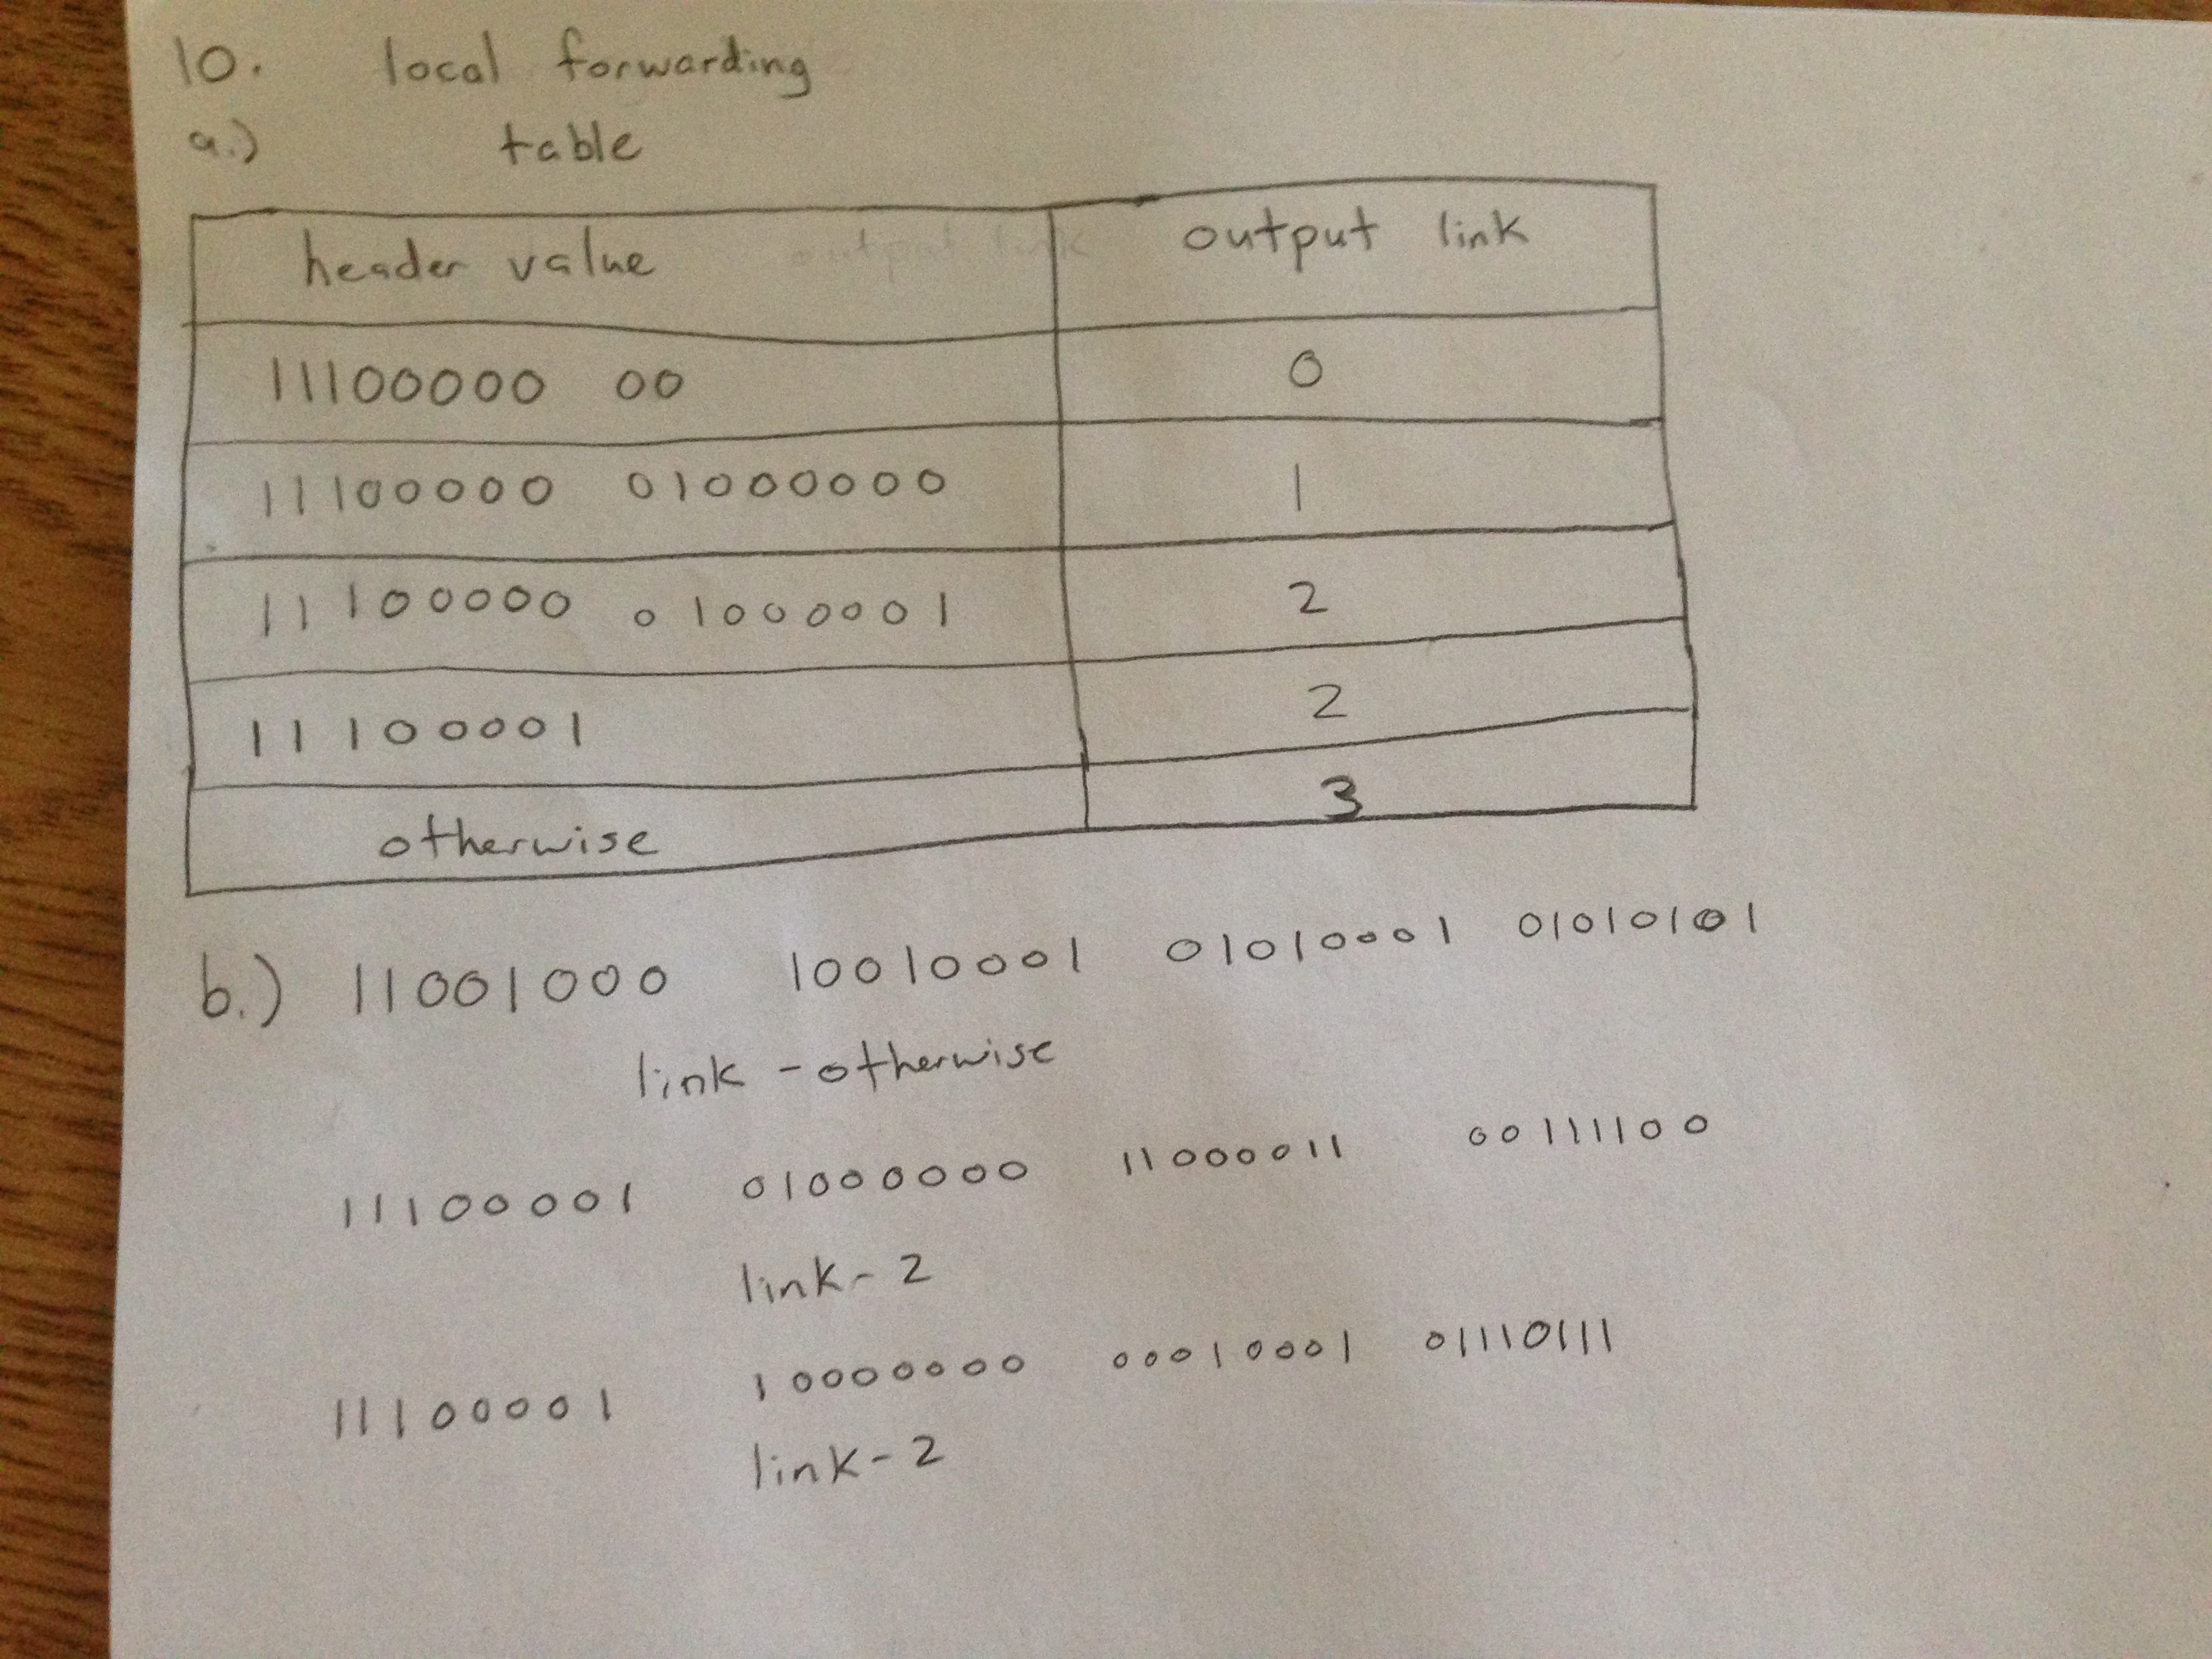 10. local forwarding
a.) table
header value output link
11100000 00 0
11100000 01000000 1
11100000 01000001 2
11100001 2
otherwise 3
b.) 11001000 10010001 01010001 01010101
link - otherwise
11100001 01000000 11000011 00111100
link - 2
11100001 10000000 00010001 01110111
link - 2